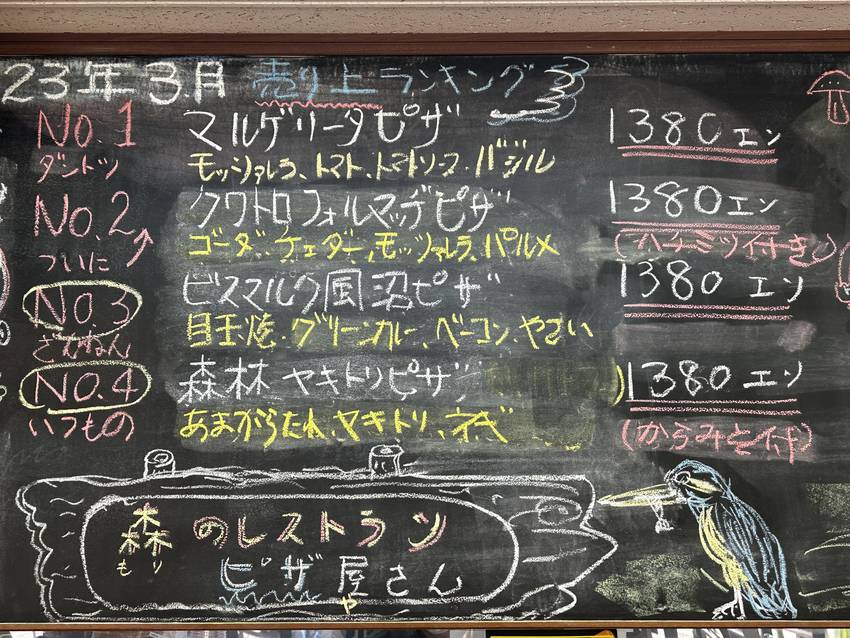 23年3月 売り上ランキング
No.1 マルゲリータピザ 1380エン
ダントツ モッツァレラ、トマト、トマトソース・バジル
No.2 クワトロフォルマッヂピザ 1380エン
ついに ゴーダ・チェダー、モッツァレラ、パルメ (ハチミツ付き)
No.3 ビスマルク風沼ピザ 1380エン
ざんねん 目玉焼・グリーンカレー、ベーコン・やさい
No.4 森林ヤキトリピザ 1380エン
いつもの あまからたれ、ヤキトリ、ネギ (からみそ付)
森のレストラン
もり
ピザ屋さん
や